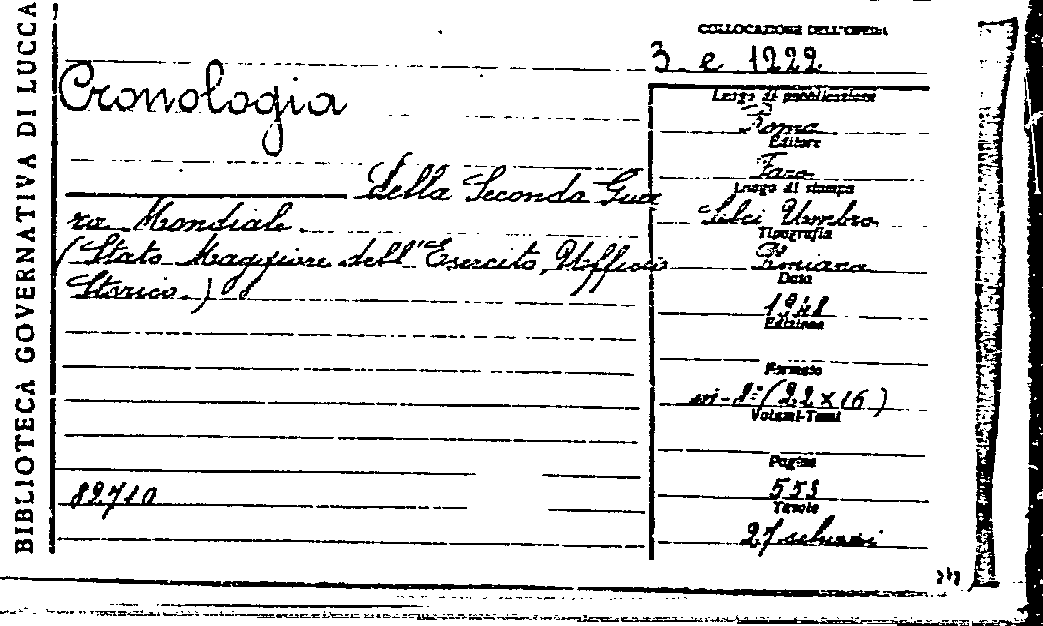 BIBLIOTECA GOVERNATIVA DI LUCCA
COLLOCAZIONE DELL'OPERA
3 e 1222
Cronologia
della Seconda Guer
ra Mondiale
(Stato Maggiore dell'Esercito, Ufficio
Storico.)
82710
Luogo di pubblicazione
Roma
Editore
Faro
Luogo di stampa
Selci Umbro
Tipografia
Data
1948
Edizione
Formato
in-8º (22 x 16)
Volumi-Tomi
Pagine
553
Tavole
27 schizzi